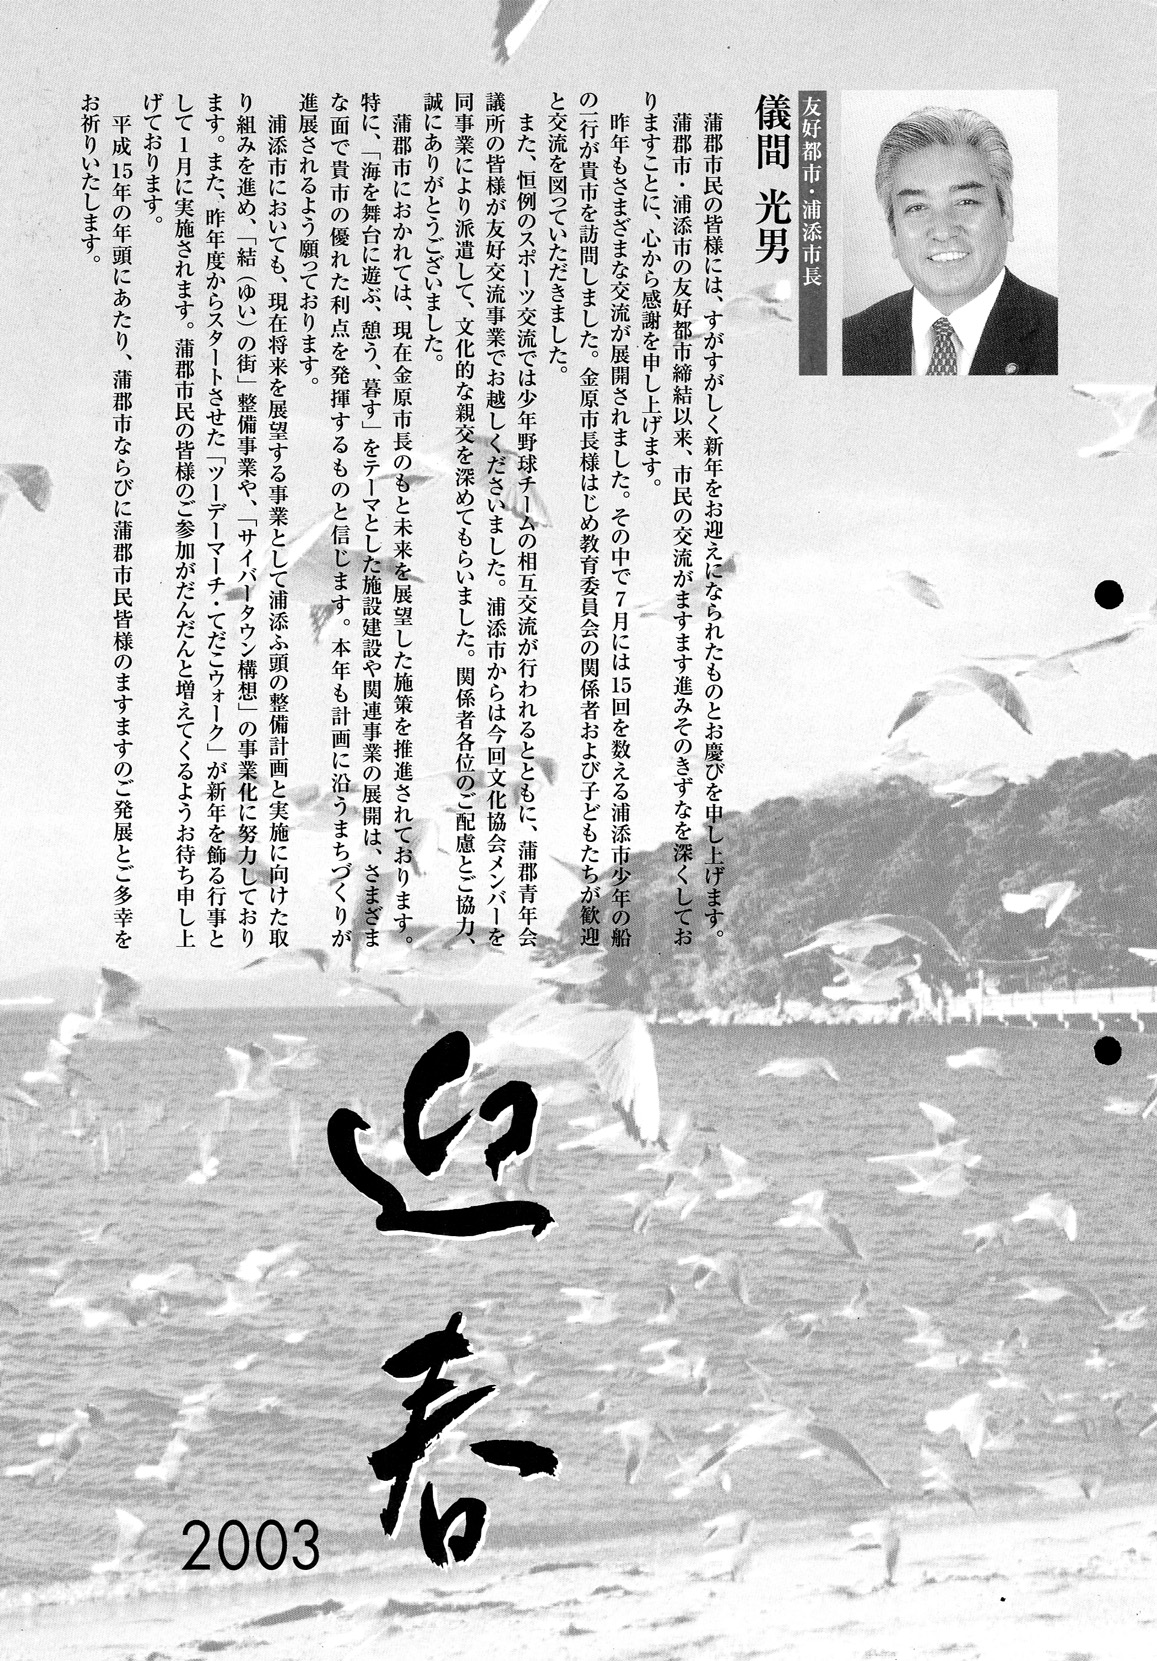 友好都市・浦添市長
儀間 光男
蒲郡市民の皆様には、すがすがしく新年をお迎えになられたものとお慶びを申し上げます。
蒲郡市・浦添市の友好都市締結以来、市民の交流がますます進みそのきずなを深くしてお
りますことに、心から感謝を申し上げます。
昨年もさまざまな交流が展開されました。その中で7月には15回を数える浦添市少年の船
の一行が貴市を訪問しました。金原市長様はじめ教育委員会の関係者および子どもたちが歓迎
と交流を図っていただきました。
また、恒例のスポーツ交流では少年野球チームの相互交流が行われるとともに、蒲郡青年会
議所の皆様が友好交流事業でお越しくださいました。浦添市からは今回文化協会メンバーを
同事業により派遣して、文化的な親交を深めてもらいました。関係者各位のご配慮とご協力、
誠にありがとうございました。
蒲郡市におかれては、現在金原市長のもと未来を展望した施策を推進されております。
特に、「海を舞台に遊ぶ、憩う、暮す」をテーマとした施設建設や関連事業の展開は、さまざま
な面で貴市の優れた利点を発揮するものと信じます。本年も計画に沿うまちづくりが
進展されるよう願っております。
浦添市においても、現在将来を展望する事業として浦添ふ頭の整備計画と実施に向けた取
り組みを進め、「結（ゆい）の街」整備事業や、「サイバータウン構想」の事業化に努力しており
ます。また、昨年度からスタートさせた「ツーデーマーチ・てだこウォーク」が新年を飾る行事と
して1月に実施されます。蒲郡市民の皆様のご参加がだんだんと増えてくるようお待ち申し上
げております。
平成15年の年頭にあたり、蒲郡市ならびに蒲郡市民皆様のますますのご発展とご多幸を
お祈りいたします。
迎春
2003